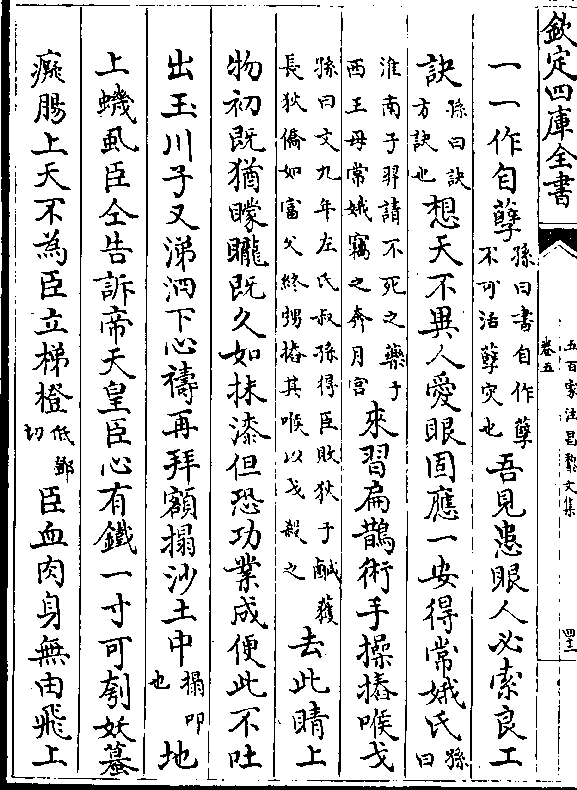 欽定四庫全書
五百家注昌黎文集
卷五
四三
一一作自孽孫曰書自作孽不可活孽灾也吾見患眼人必索良工
訣孫曰訣方訣也想天不異人愛眼固應一安得常娥氏孫曰
淮南子羿請不死之藥于西王母常娥竊之奔月宮來習扁鵲術手操摏喉戈
孫曰文九年左氏叔孫得臣敗狄于鹹獲長狄僑如富父終甥摏其喉以戈殺之去此睛上
物初既猶矇矓既久如抹漆但恐功業成便此不吐
出玉川子又涕泗下心禱再拜額搨沙土中搨叩也地
上蟣虱臣仝告訴帝天皇臣心有鐵一寸可刳妖蟇
癡腸上天不為臣立梯橙低鄧切臣血肉身無由飛上